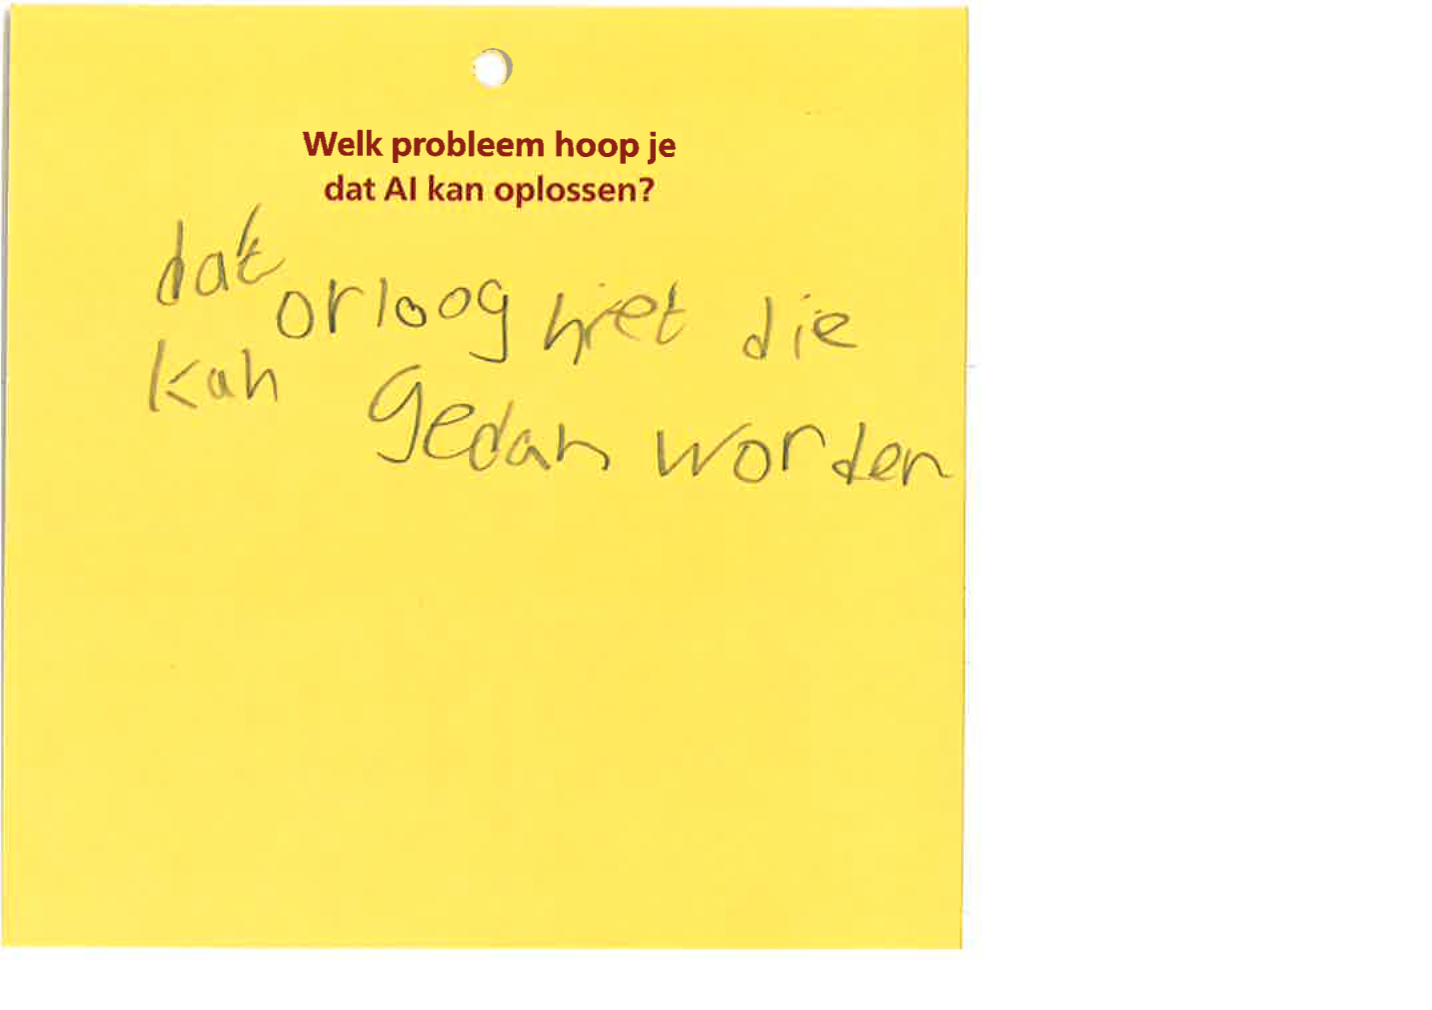 Welk probleem hoop je
dat AI kan oplossen?
dat orloog niet die
kan gedan worden